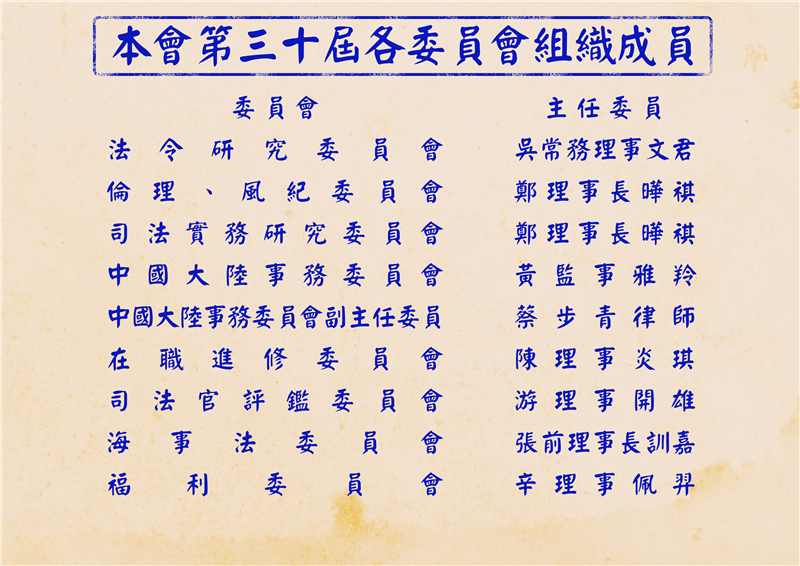 本會第三十屆各委員會組織成員
委員會 主任委員
法令研究委員會 吳常務理事文君
倫理、風紀委員會 鄭理事長曄祺
司法實務研究委員會 鄭理事長曄祺
中國大陸事務委員會 黃監事雅羚
中國大陸事務委員會副主任委員 蔡步青律師
在職進修委員會 陳理事炎琪
司法官評鑑委員會 游理事開雄
海事法委員會 張前理事長訓嘉
福利委員會 辛理事佩羿